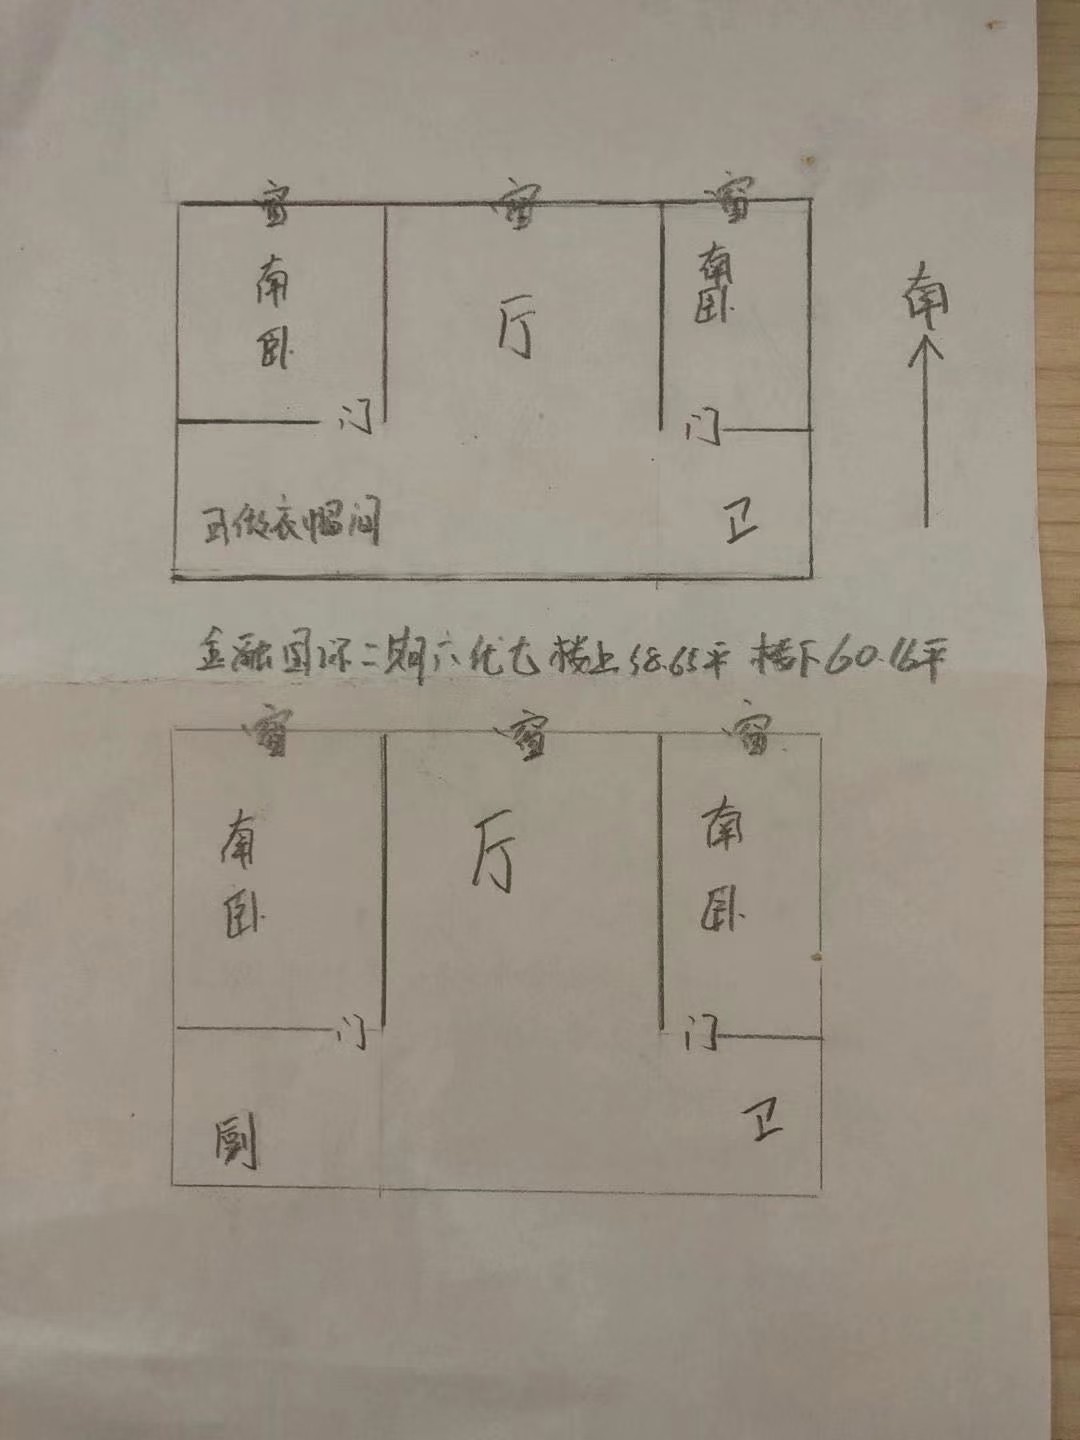 窗 窗 窗
南卧 厅 南卧
南
门 门
可做衣帽间 卫
金融国际二期六代七 楼上58.65平 楼下60.16平
窗 窗 窗
南卧 厅 南卧
门 门
厨 卫